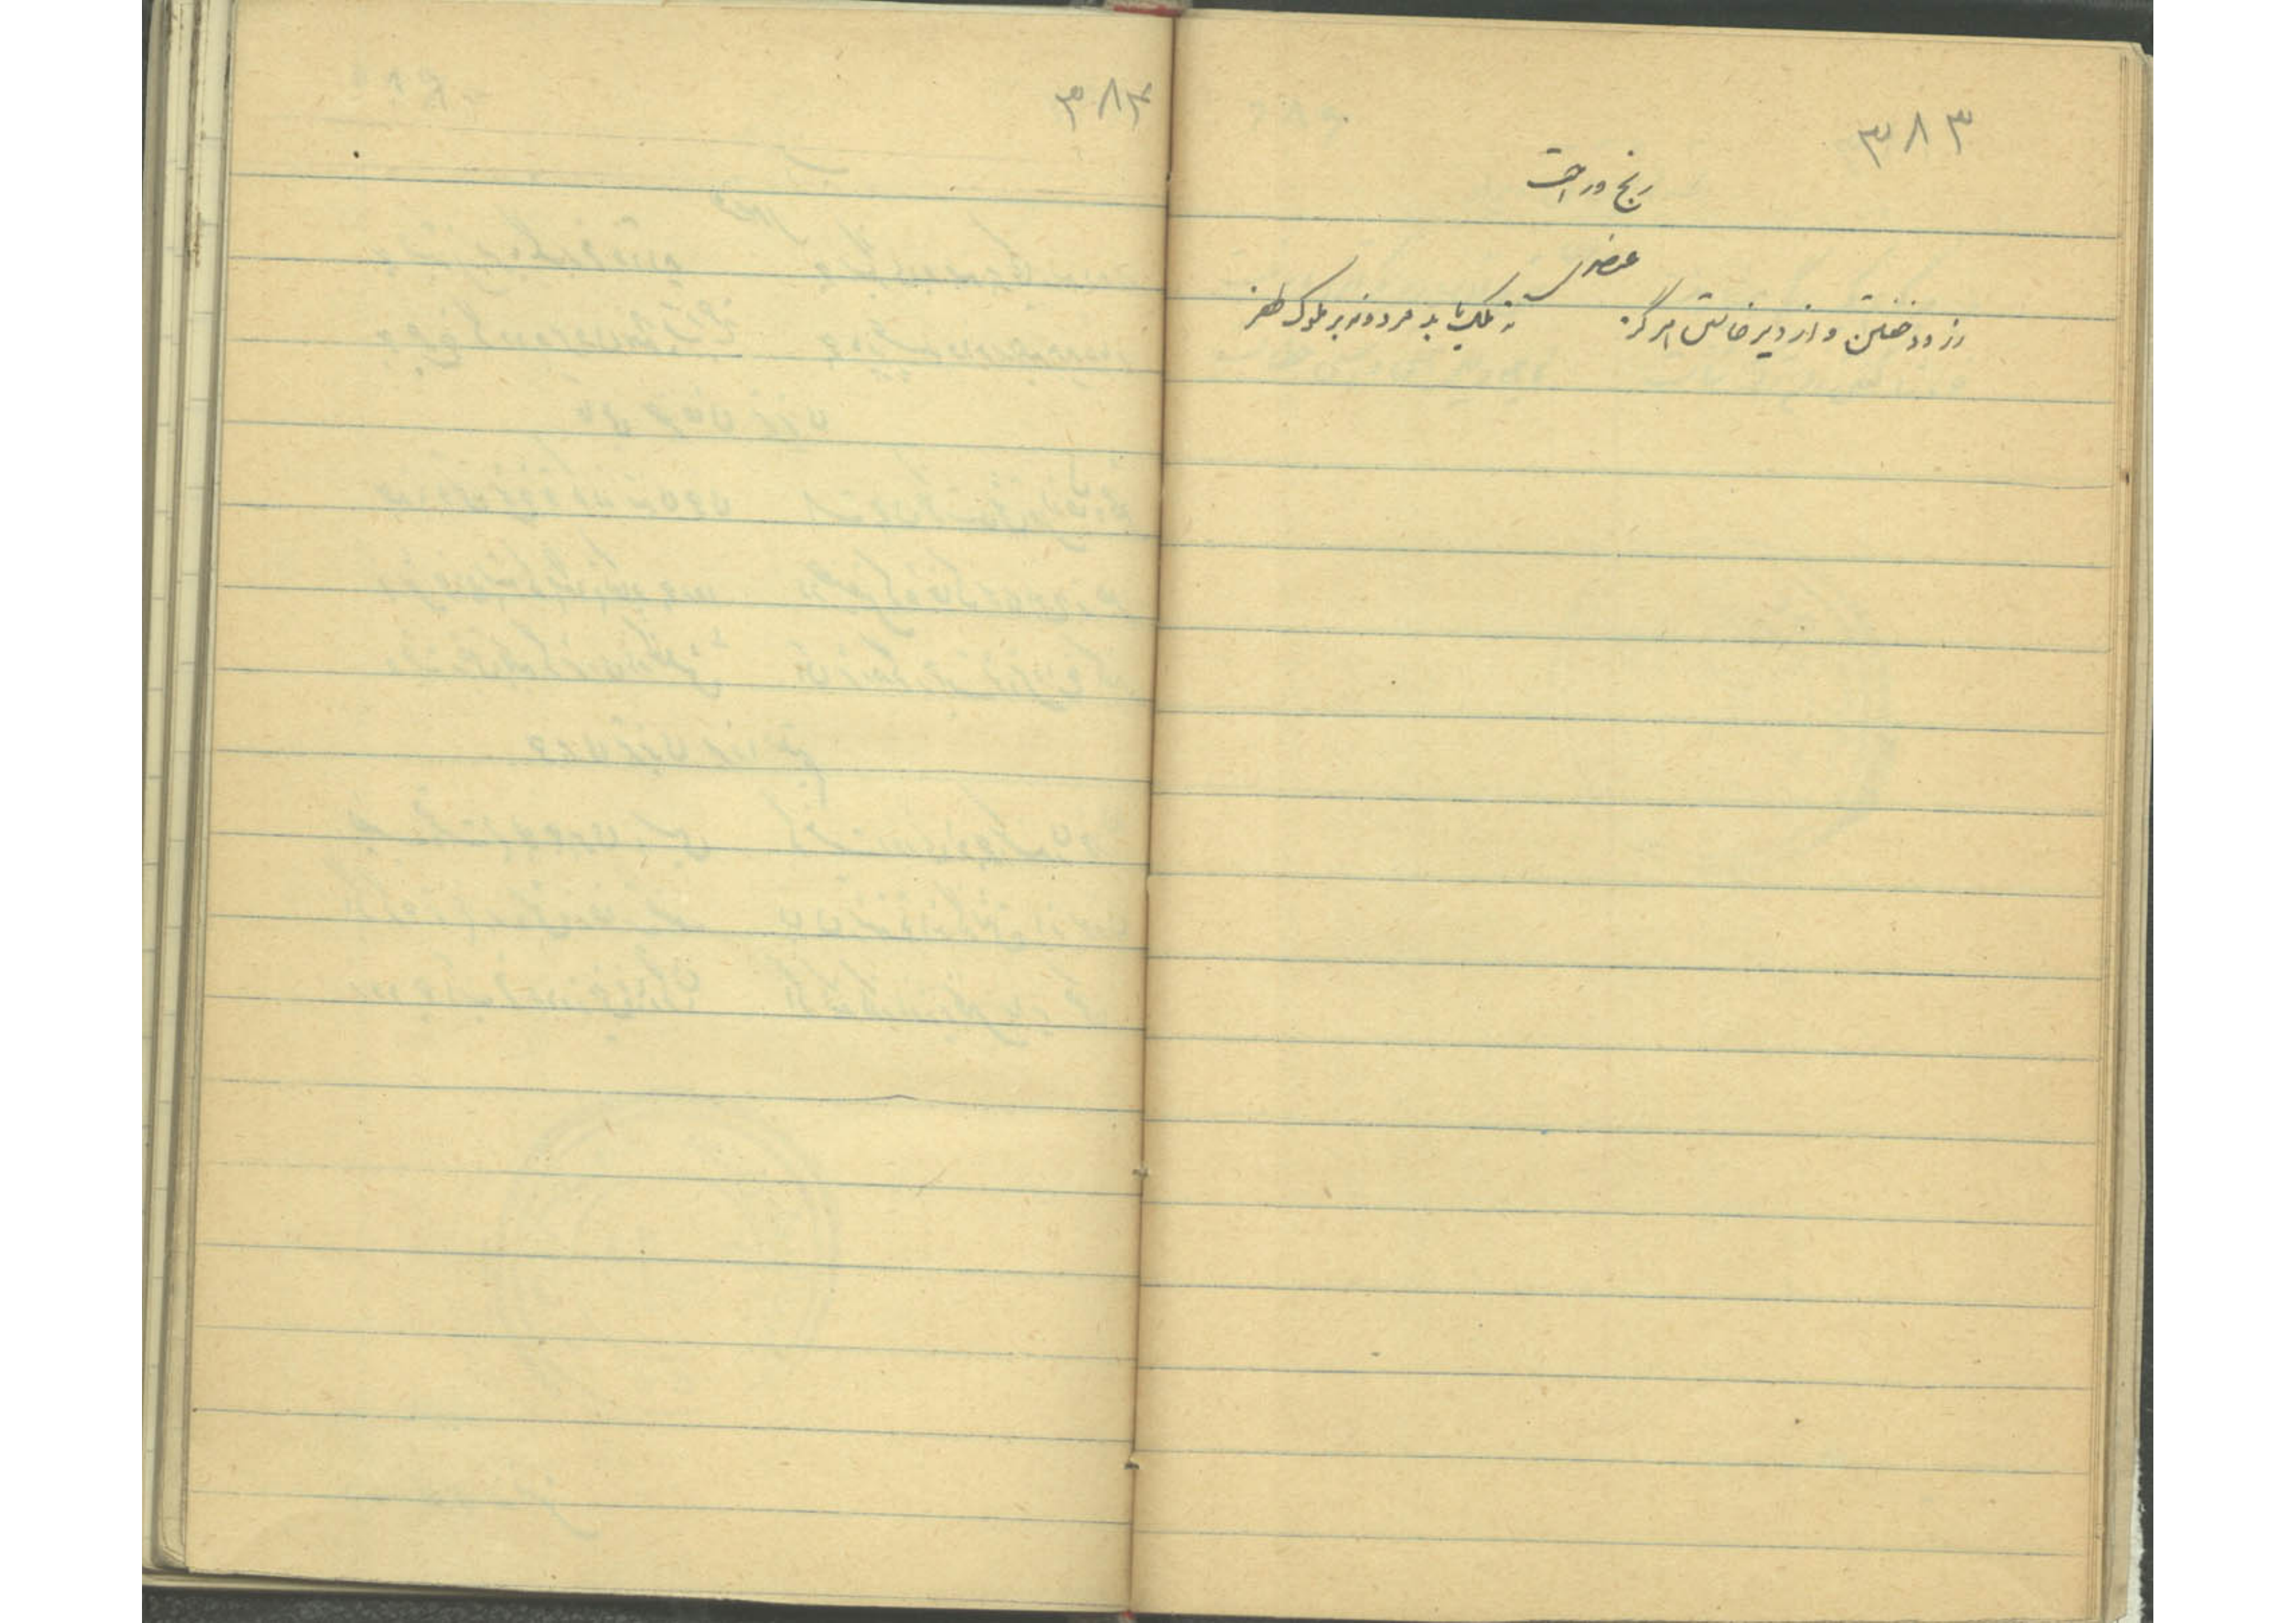 ۳۸۳
رنج و راحت
عنصری
از زود خفتن و از دیر خاستن هرگز نه ملک یابد مرد و نه بر ملوک ظفر
۳۸۴